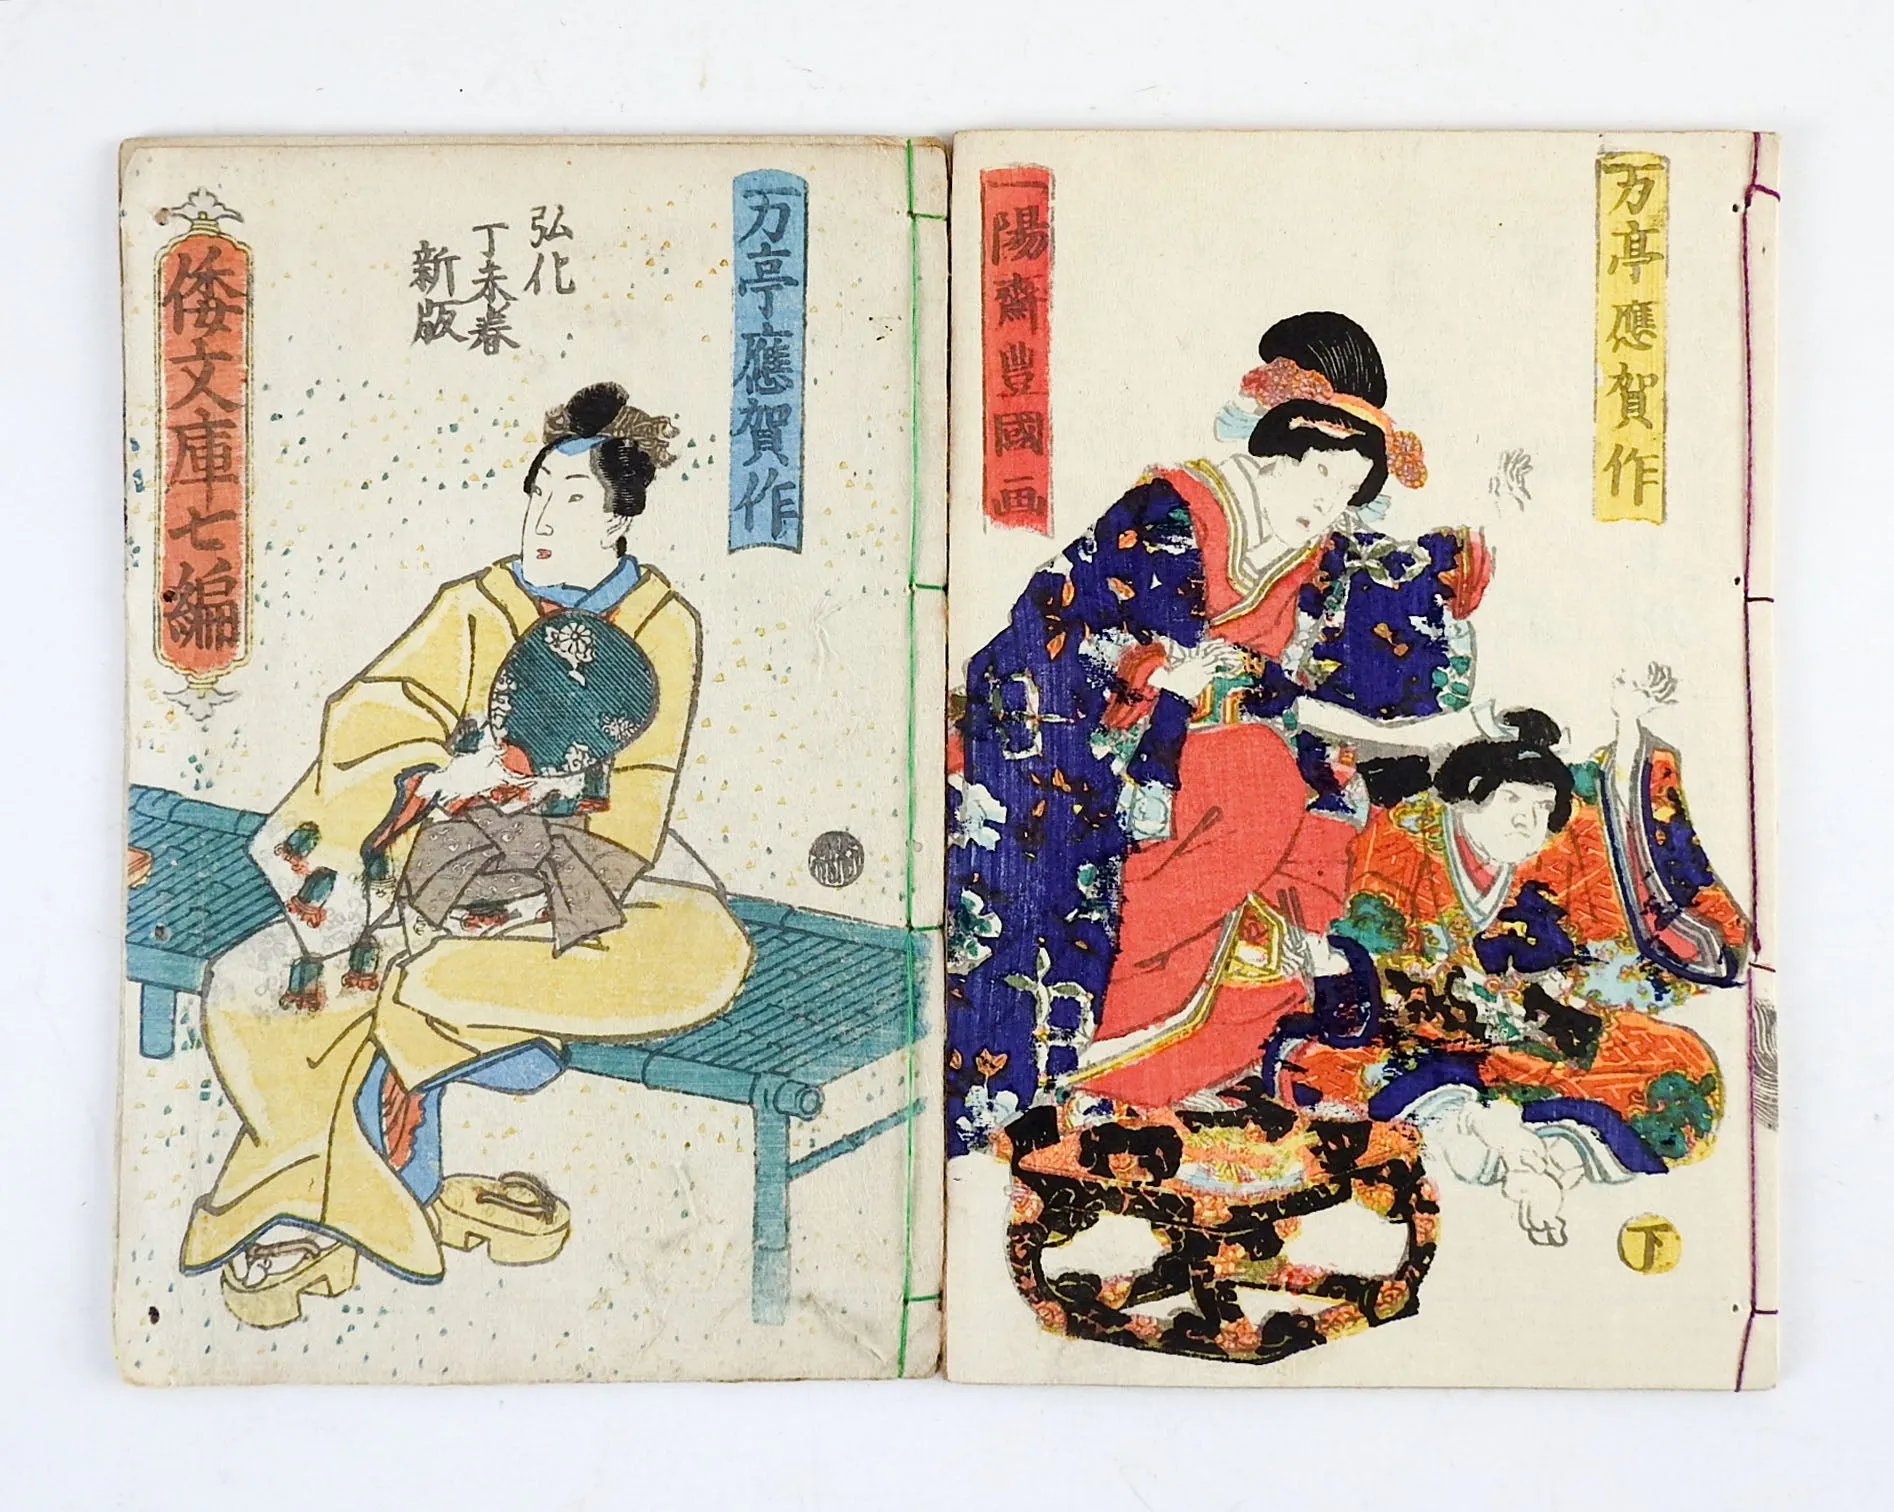 万亭應賀作
弘化
丁未春
新版
倭文庫七編
万亭應賀作
一陽齋豊國画
下